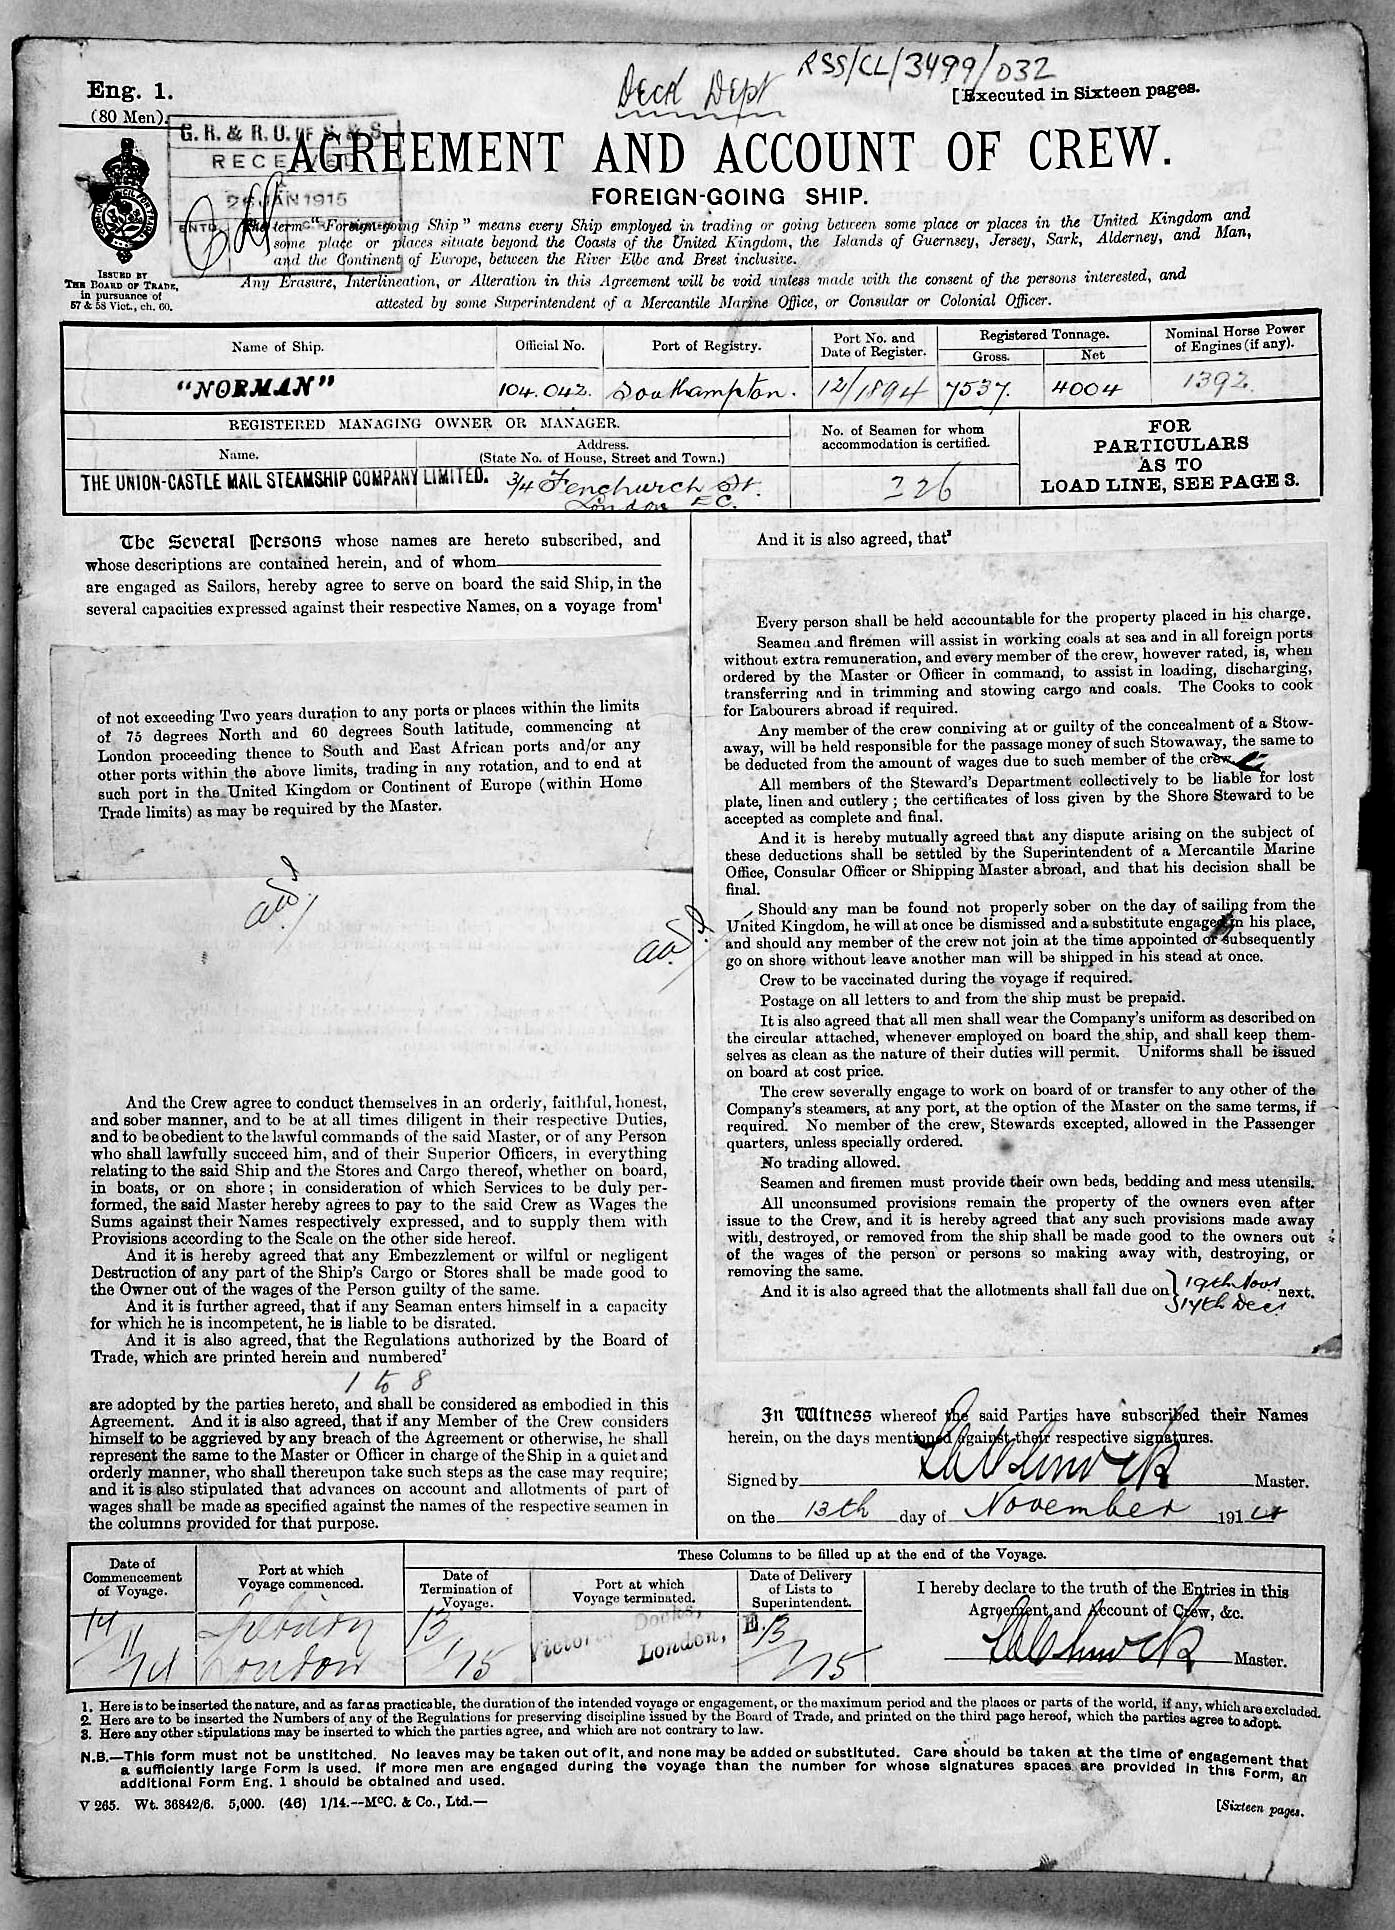 RSS/CL/3499/032
Deck Dept
Eng. 1.
(80 Men).
[Executed in Sixteen pages.
G. R. & R. O. OF S. & S.
RECEIVED
26 JAN 1915
AGREEMENT AND ACCOUNT OF CREW.
FOREIGN-GOING SHIP.
The term "Foreign-going Ship" means every Ship employed in trading or going between some place or places in the United Kingdom and
some place or places situate beyond the Coasts of the United Kingdom, the Islands of Guernsey, Jersey, Sark, Alderney, and Man,
and the Continent of Europe, between the River Elbe and Brest inclusive.
Any Erasure, Interlineation, or Alteration in this Agreement will be void unless made with the consent of the persons interested, and
attested by some Superintendent of a Mercantile Marine Office, or Consular or Colonial Officer.
ISSUED BY
THE BOARD OF TRADE,
in pursuance of
57 & 58 Vict., ch. 60.
Name of Ship.
Official No.
Port of Registry.
Port No. and
Date of Register.
Registered Tonnage.
Gross.
Net
Nominal Horse Power
of Engines (if any).
"NORMAN"
104.042.
Southampton.
12/1894
7537.
4004
1392.
REGISTERED MANAGING OWNER OR MANAGER.
Name.
Address.
(State No. of House, Street and Town.)
No. of Seamen for whom
accommodation is certified.
FOR
PARTICULARS
AS TO
LOAD LINE, SEE PAGE 3.
THE UNION-CASTLE MAIL STEAMSHIP COMPANY LIMITED.
3/4 Fenchurch St.
London E C.
226
The Several Persons whose names are hereto subscribed, and
whose descriptions are contained herein, and of whom
are engaged as Sailors, hereby agree to serve on board the said Ship, in the
several capacities expressed against their respective Names, on a voyage from¹
of not exceeding Two years duration to any ports or places within the limits
of 75 degrees North and 60 degrees South latitude, commencing at
London proceeding thence to South and East African ports and/or any
other ports within the above limits, trading in any rotation, and to end at
such port in the United Kingdom or Continent of Europe (within Home
Trade limits) as may be required by the Master.
And the Crew agree to conduct themselves in an orderly, faithful, honest,
and sober manner, and to be at all times diligent in their respective Duties,
and to be obedient to the lawful commands of the said Master, or of any Person
who shall lawfully succeed him, and of their Superior Officers, in everything
relating to the said Ship and the Stores and Cargo thereof, whether on board,
in boats, or on shore; in consideration of which Services to be duly per-
formed, the said Master hereby agrees to pay to the said Crew as Wages the
Sums against their Names respectively expressed, and to supply them with
Provisions according to the Scale on the other side hereof.
And it is hereby agreed that any Embezzlement or wilful or negligent
Destruction of any part of the Ship's Cargo or Stores shall be made good to
the Owner out of the wages of the Person guilty of the same.
And it is further agreed, that if any Seaman enters himself in a capacity
for which he is incompetent, he is liable to be disrated.
And it is also agreed, that the Regulations authorized by the Board of
Trade, which are printed herein and numbered²
1 to 8
are adopted by the parties hereto, and shall be considered as embodied in this
Agreement. And it is also agreed, that if any Member of the Crew considers
himself to be aggrieved by any breach of the Agreement or otherwise, he shall
represent the same to the Master or Officer in charge of the Ship in a quiet and
orderly manner, who shall thereupon take such steps as the case may require;
and it is also stipulated that advances on account and allotments of part of
wages shall be made as specified against the names of the respective seamen in
the columns provided for that purpose.
And it is also agreed, that³
Every person shall be held accountable for the property placed in his charge.
Seamen and firemen will assist in working coals at sea and in all foreign ports
without extra remuneration, and every member of the crew, however rated, is, when
ordered by the Master or Officer in command, to assist in loading, discharging,
transferring and in trimming and stowing cargo and coals. The Cooks to cook
for Labourers abroad if required.
Any member of the crew conniving at or guilty of the concealment of a Stow-
away, will be held responsible for the passage money of such Stowaway, the same to
be deducted from the amount of wages due to such member of the crew.
All members of the Steward's Department collectively to be liable for lost
plate, linen and cutlery; the certificates of loss given by the Shore Steward to be
accepted as complete and final.
And it is hereby mutually agreed that any dispute arising on the subject of
these deductions shall be settled by the Superintendent of a Mercantile Marine
Office, Consular Officer or Shipping Master abroad, and that his decision shall be
final.
Should any man be found not properly sober on the day of sailing from the
United Kingdom, he will at once be dismissed and a substitute engaged in his place,
and should any member of the crew not join at the time appointed or subsequently
go on shore without leave another man will be shipped in his stead at once.
Crew to be vaccinated during the voyage if required.
Postage on all letters to and from the ship must be prepaid.
It is also agreed that all men shall wear the Company's uniform as described on
the circular attached, whenever employed on board the ship, and shall keep them-
selves as clean as the nature of their duties will permit. Uniforms shall be issued
on board at cost price.
The crew severally engage to work on board of or transfer to any other of the
Company's steamers, at any port, at the option of the Master on the same terms, if
required. No member of the crew, Stewards excepted, allowed in the Passenger
quarters, unless specially ordered.
No trading allowed.
Seamen and firemen must provide their own beds, bedding and mess utensils.
All unconsumed provisions remain the property of the owners even after
issue to the Crew, and it is hereby agreed that any such provisions made away
with, destroyed, or removed from the ship shall be made good to the owners out
of the wages of the person or persons so making away with, destroying, or
removing the same.
And it is also agreed that the allotments shall fall due on 19th Nov next.
17th Dec
In Witness whereof the said Parties have subscribed their Names
herein, on the days mentioned against their respective signatures.
Signed by Master.
on the 13th day of November 1914
Date of
Commencement
of Voyage.
Port at which
Voyage commenced.
These Columns to be filled up at the end of the Voyage.
Date of
Termination of
Voyage.
Port at which
Voyage terminated.
Date of Delivery
of Lists to
Superintendent.
I hereby declare to the truth of the Entries in this
Agreement and Account of Crew, &c.
Master.
14/11/14
Tilbury
London
13/1/15
Victoria Docks,
London, E.
13/1/15
1. Here is to be inserted the nature, and as far as practicable, the duration of the intended voyage or engagement, or the maximum period and the places or parts of the world, if any, which are excluded.
2. Here are to be inserted the Numbers of any of the Regulations for preserving discipline issued by the Board of Trade, and printed on the third page hereof, which the parties agree to adopt.
3. Here any other stipulations may be inserted to which the parties agree, and which are not contrary to law.
N.B.—This form must not be unstitched. No leaves may be taken out of it, and none may be added or substituted. Care should be taken at the time of engagement that
a sufficiently large Form is used. If more men are engaged during the voyage than the number for whose signatures spaces are provided in this Form, an
additional Form Eng. 1 should be obtained and used.
V 265. Wt. 36842/6. 5,000. (46) 1/14.—McC. & Co., Ltd.—
[Sixteen pages.